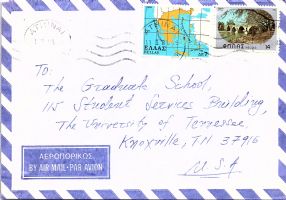 ΑΘΗΝΑΙ
ΕΛΛΑΣ
HELLAS
ΕΛΛΑΣ
To:
The Graduate School,
115 Student Services Building,
The University of Tennessee
Knoxville, TN 37916
U.S.A
ΑΕΡΟΠΟΡΙΚΩΣ
BY AIR MAIL-PAR AVION